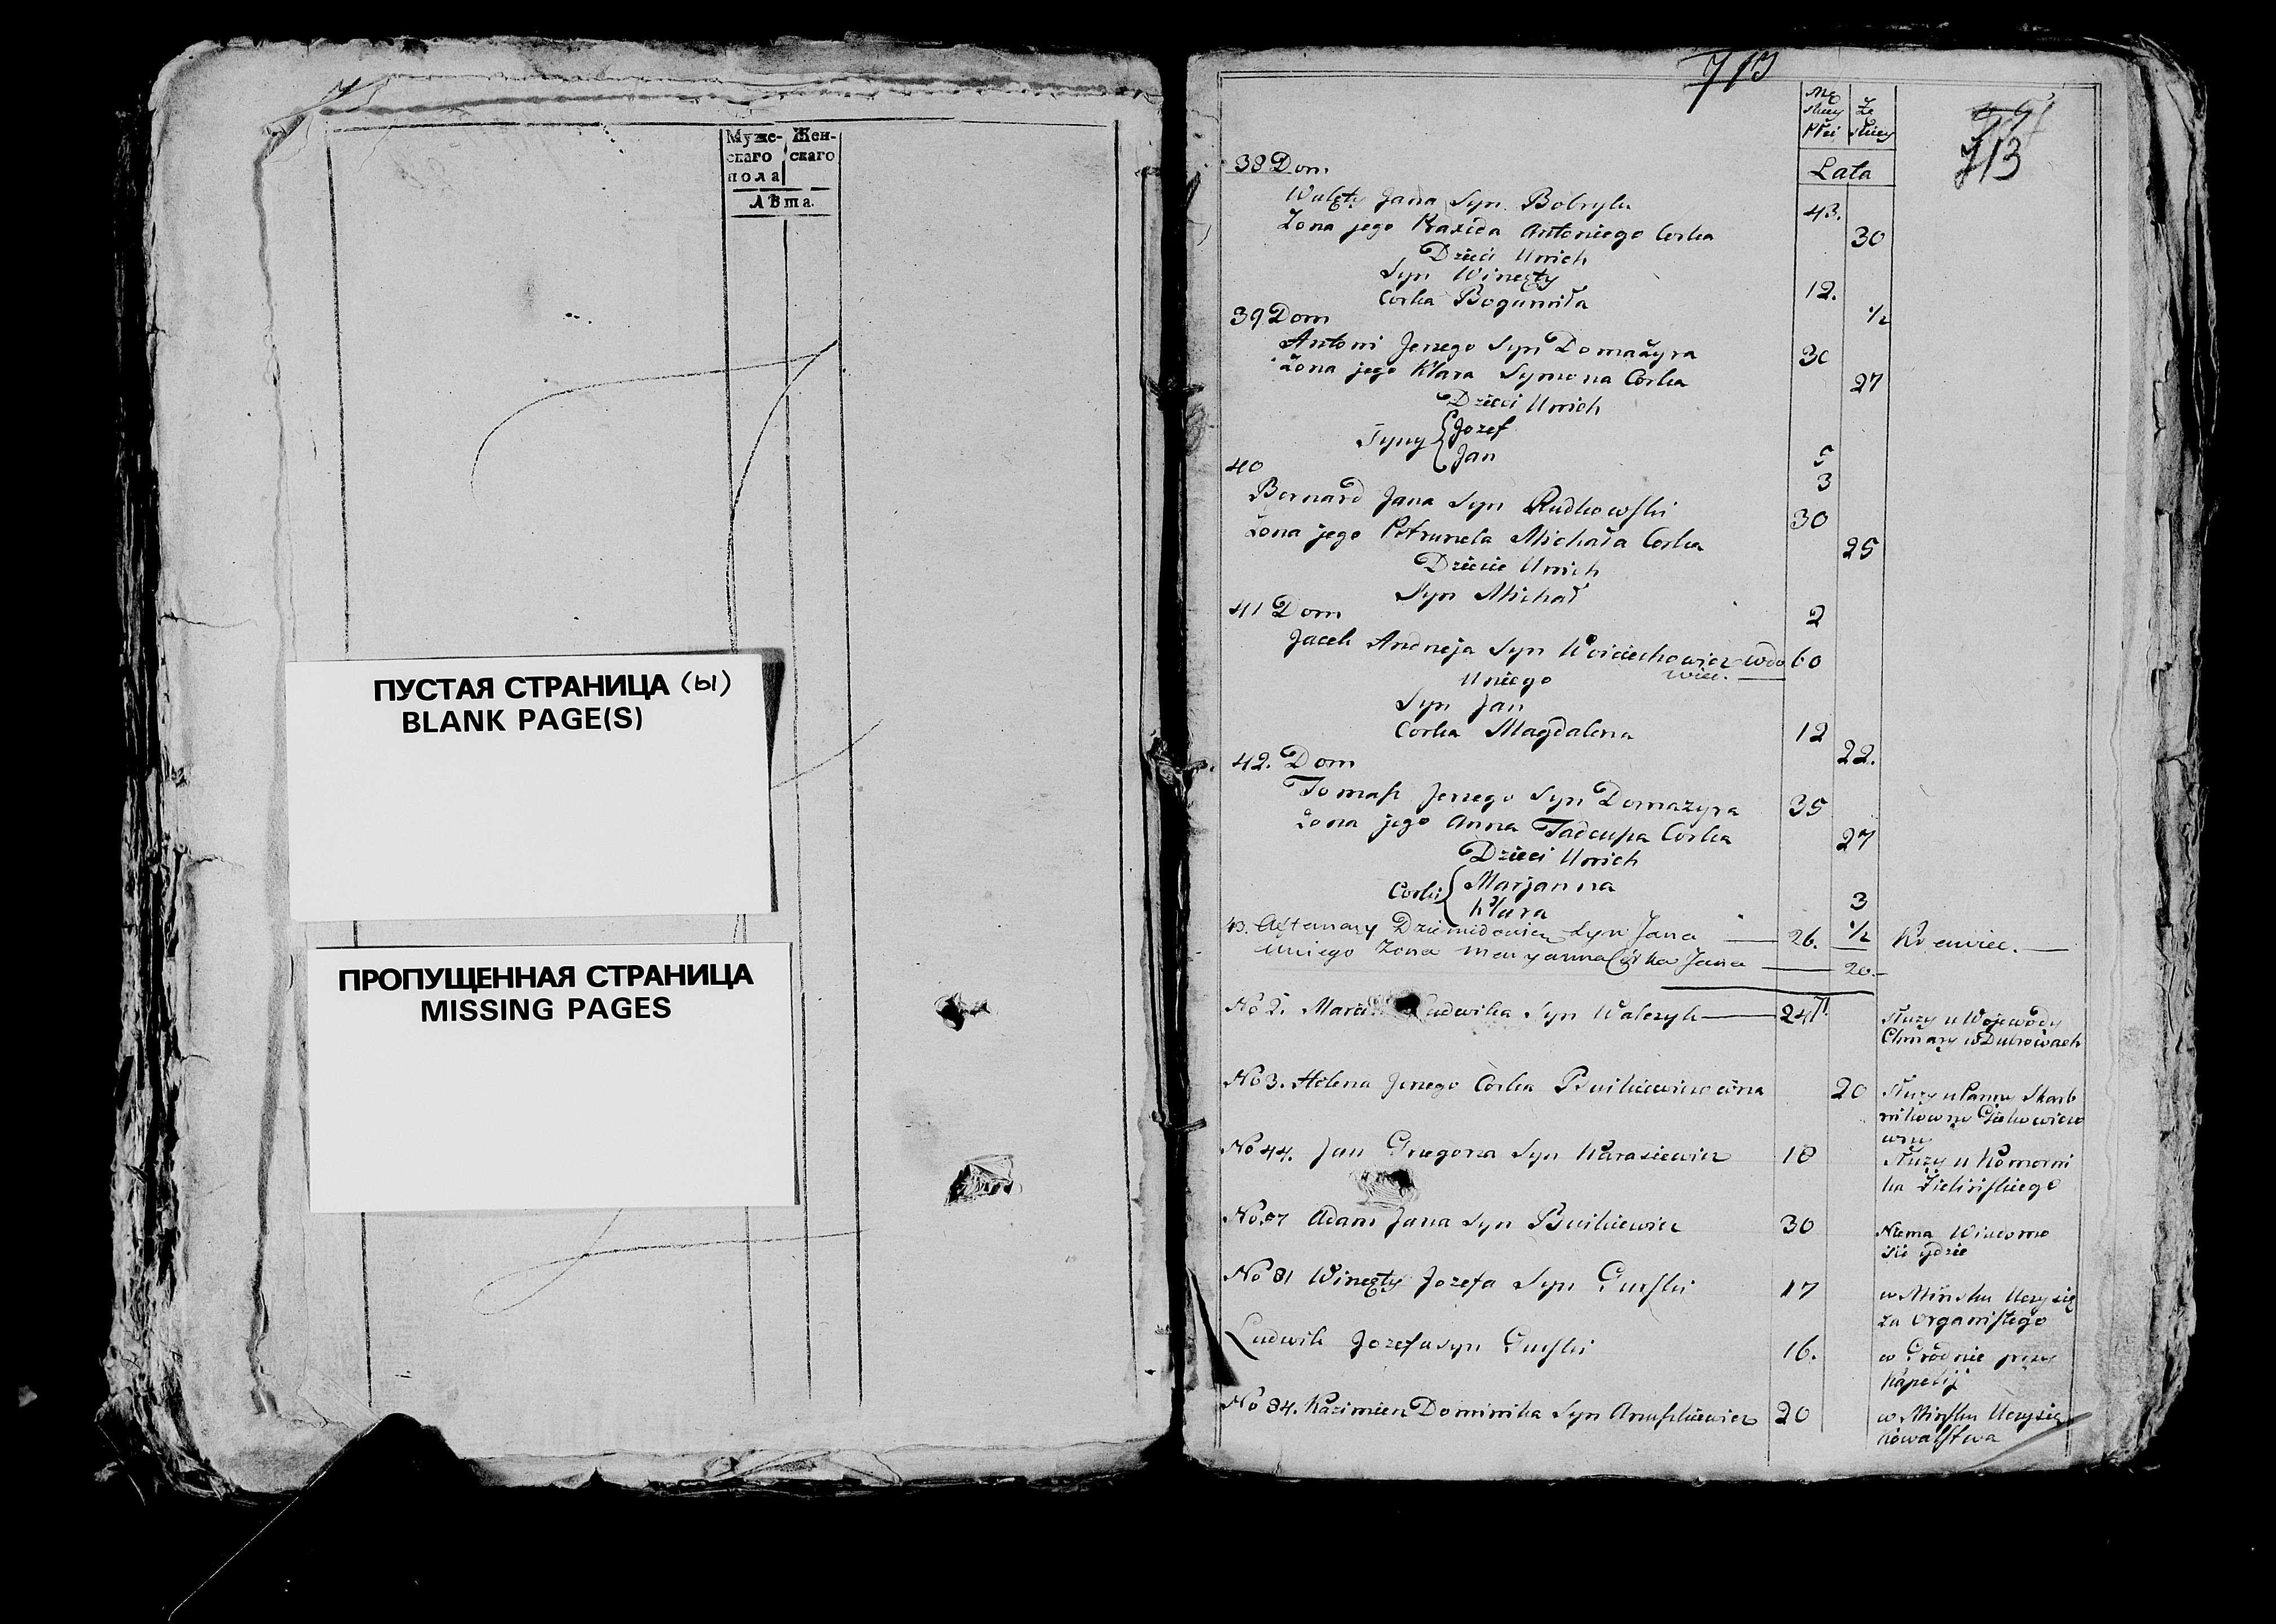 Муже-
скаго
пола
Жен-
скаго
Лѣта.
ПУСТАЯ СТРАНИЦА (ы)
BLANK PAGE(S)
ПРОПУЩЕННАЯ СТРАНИЦА
MISSING PAGES
713
713
Lata
38 Dom
Walęty Jana Syn Bobryk 43.
Żona jego Praxeda Antoniego Corka 30
Dzieci Unich
Syn Wincęty 12.
Corka Bogumiła ½
39 Dom
Antoni Jerzego Syn Domażyra 30
Żona jego Klara Symona Corka 27
Dzieci Unich
Syny Jozef 5
Jan 3
40
Bernard Jana Syn Rudkowski 30
Żona jego Petrunela Michała Corka 25
Dziecie Unich
Syn Michał 2
41 Dom
Jacek Andrzeja Syn Woiciechowicz wdo 60
wiec.
Uniego
Syn Jan 12
Corka Magdalena 22.
42. Dom
Tomasz Jerzego Syn Domazyra 35
Żona jego Anna Tadeusza Corka 27
Dzieci Unich
Corki Marjanna 3
Klara ½
43. Dziemidowicz Syn Jana 26. Krawiec.
Uniego Zona Maryanna Córka Jana 20.
No 2. Ludwika Syn Walczyk 24 Służy u Wojewody
Chmary w Dubrowach
No 3. Helena Jerzego Corka 20 Służy u Panny Skarb
nikowny
wny
No 44. Jan Gregorza Syn Karasiewicz 18 Służy u Komorni
ka Zielinskiego
Adam Jana Syn 30 Niema Wiadomo
ści gdzie
No 81 Wincęty Jozefa Syn Gurski 17 w Minsku Uczy się
za Organistego
Ludwik Jozefa syn Gurski 16. w Grodnie przy
Kapelij
No 84. Kazimierz Dominika Syn Anuszkiewicz 20 w Minsku Uczy się
kowalstwa